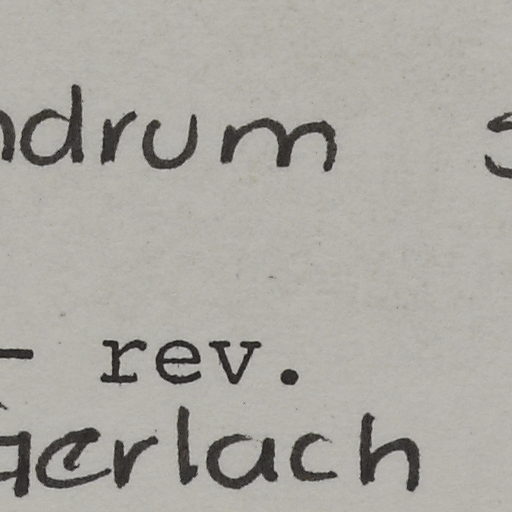 ndrum s
- rev.
Gerlach